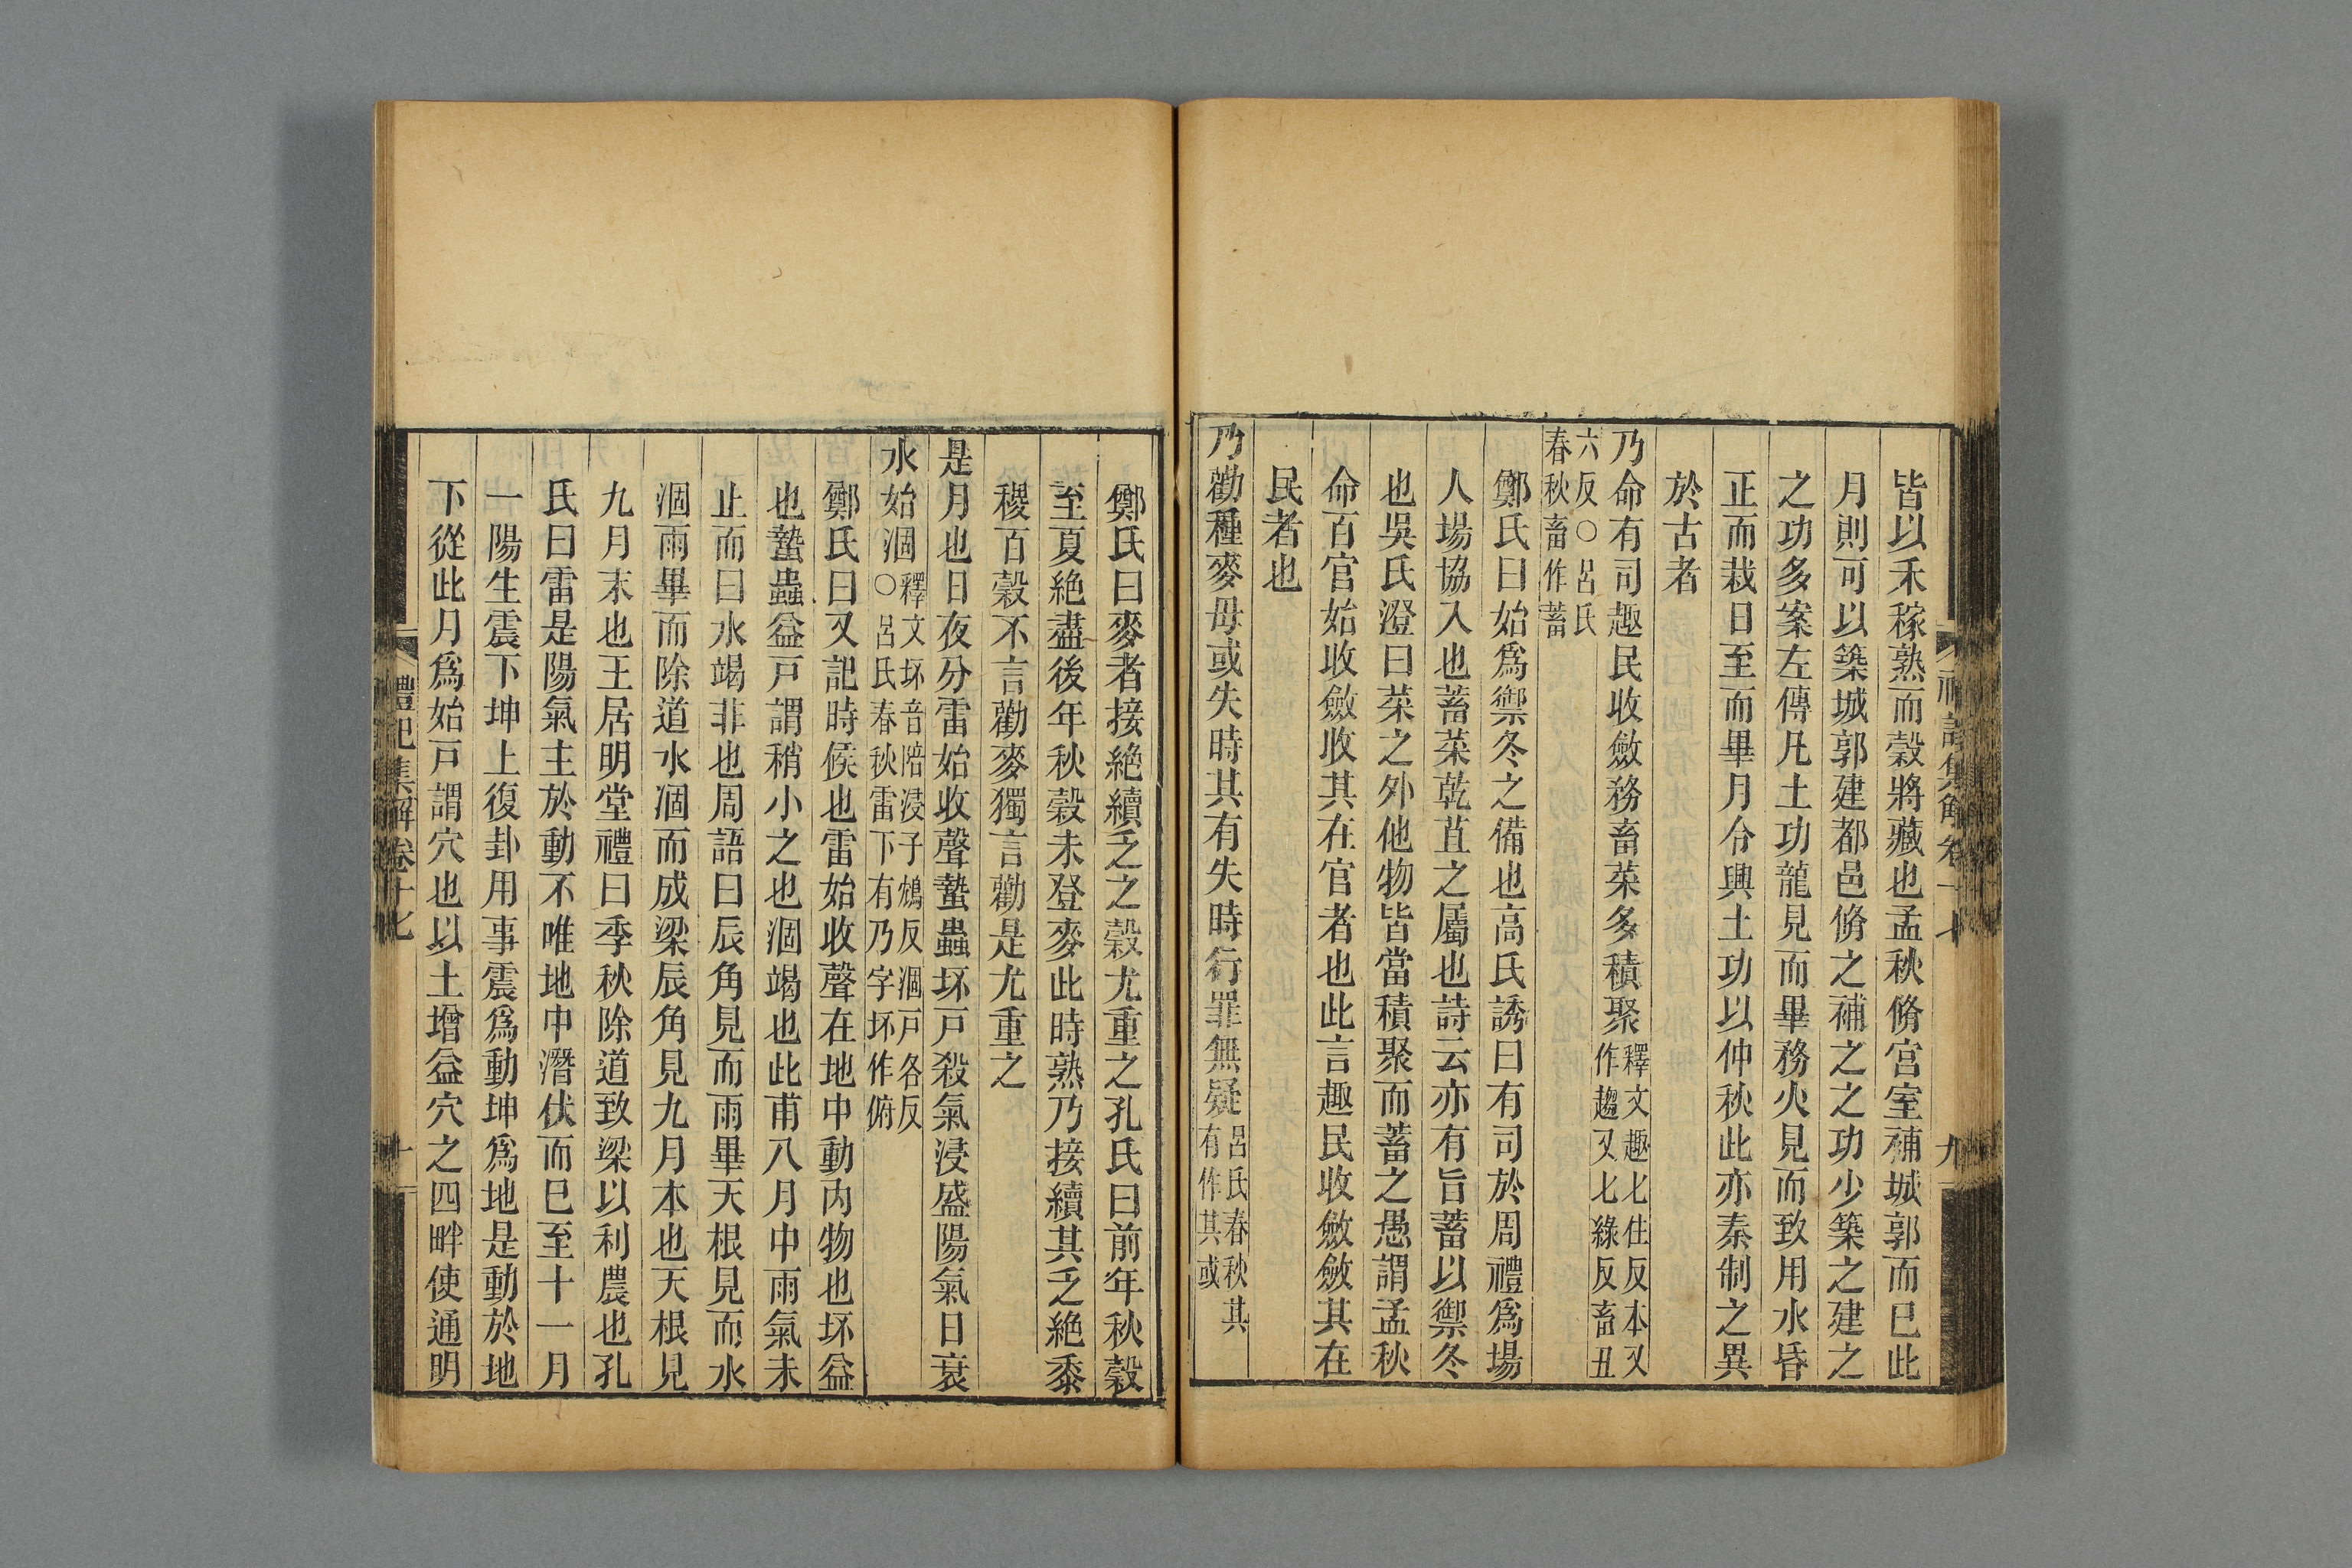 皆以禾稼熟而穀將藏也孟秋脩宫室補城郭而已此
月則可以築城郭建都邑脩之補之之功少築之建之
之功多案左傳凡土功龍見而畢務火見而致用水昏
正而栽日至而畢月令興土功以仲秋此亦秦制之異
於古者
乃命有司趣民收斂務畜菜多積聚釋文趣七住反本又
作趨又七綠反畜丑
六反○呂氏
春秋畜作蓄
鄭氏曰始爲禦冬之備也高氏誘曰有司於周禮爲場
人場協入也蓄菜乾苴之屬也詩云亦有旨蓄以禦冬
也吳氏澄曰菜之外他物皆當積聚而蓄之愚謂孟秋
命百官始收斂收其在官者也此言趣民收斂斂其在
民者也
乃勸種麥毋或失時其有失時行罪無疑呂氏春秋其
有作其或
鄭氏曰麥者接絕續乏之穀尤重之孔氏曰前年秋穀
至夏絕盡後年秋穀未登麥此時熟乃接續其乏絕黍
稷百穀不言勸麥獨言勸是尤重之
是月也日夜分雷始收聲蟄蟲坏戸殺氣浸盛陽氣日衰
水始涸釋文坏音陪浸子鴆反涸戸各反
○呂氏春秋雷下有乃字坏作俯
鄭氏曰又記時候也雷始收聲在地中動内物也坏益
也蟄蟲益戸謂稍小之也涸竭也此甫八月中雨氣未
止而曰水竭非也周語曰辰角見而雨畢天根見而水
涸雨畢而除道水涸而成梁辰角見九月本也天根見
九月末也王居明堂禮曰季秋除道致梁以利農也孔
氏曰雷是陽氣主於動不唯地中潛伏而已至十一月
一陽生震下坤上復卦用事震爲動坤爲地是動於地
下從此月爲始戸謂穴也以土增益穴之四畔使通明
禮記集解卷十七
十
九